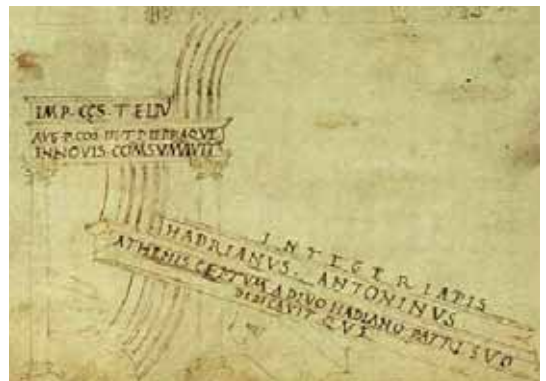 IMP. CÇS. T. ELIV
AVG. P. COS. III.
INNOVIS. COMSVMAVIT
INTEGER LAPIS
HADRIANVS. ANTONINVS
ATHENIS CEPTVM A DIVO HADIANO PATRI SVO
DEDICAVIT QVE